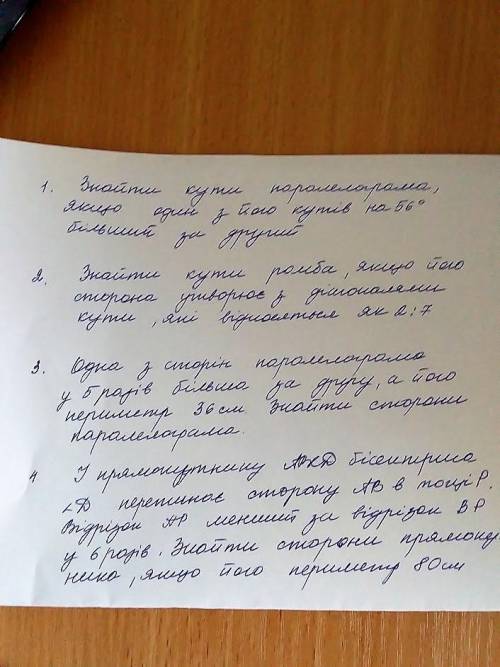 1. Знайти кути паралелограма,
якщо один з його кутів на 56°
більший за другий
2. Знайти кути ромба, якщо його
сторона утворює з діагоналями
кути, які відносяться як 2:7
3. Одна з сторін паралелограма
у 5 разів більша за другу, а його
периметр 36 см. Знайти сторони
паралелограма.
4 У прямокутнику бісектриса
∠D перетинає сторону AB в точці P.
Відрізок AP менший за відрізок BP
у 6 разів. Знайти сторони прямоку
ника, якщо його периметр 80 см